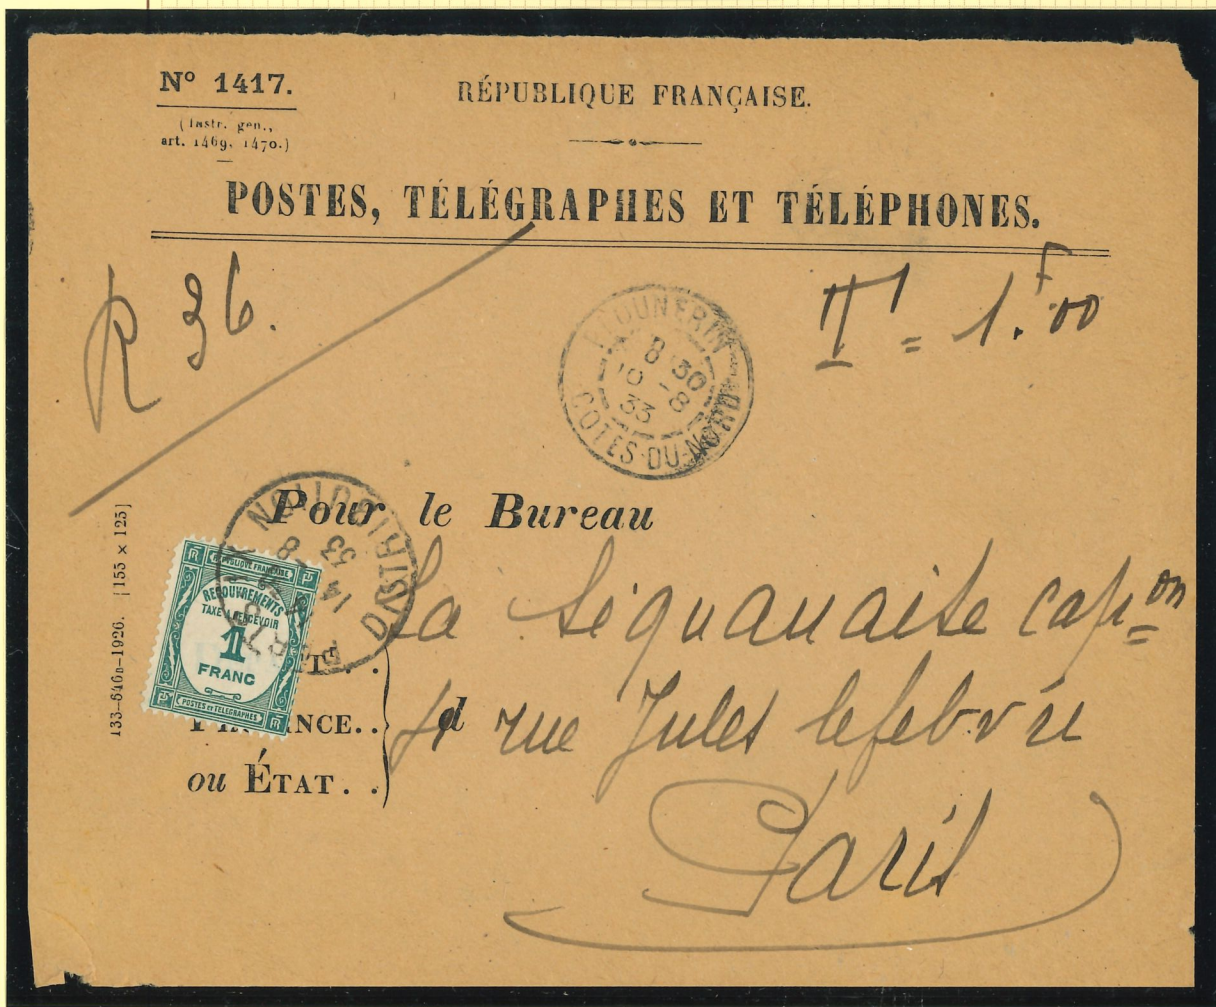 Nº 1417.
(Instr. gén.,
art. 1469, 1470.)
RÉPUBLIQUE FRANÇAISE.
POSTES, TÉLÉGRAPHES ET TÉLÉPHONES.
R 36.
T = 1.F00
PLOUNERIN
8 30
10 -8
33
COTES-DU-NORD
Pour le Bureau
133-646B-1926. [155 × 125]
DISTRIBUTION
14 -8
33
REPUBLIQUE FRANÇAISE
RECOUVREMENTS
TAXE A PERCEVOIR
1
FRANC
POSTES et TELEGRAPHES
La Séquanaise capon
rue Jules lefebvre
d
ou ÉTAT. .
Paris